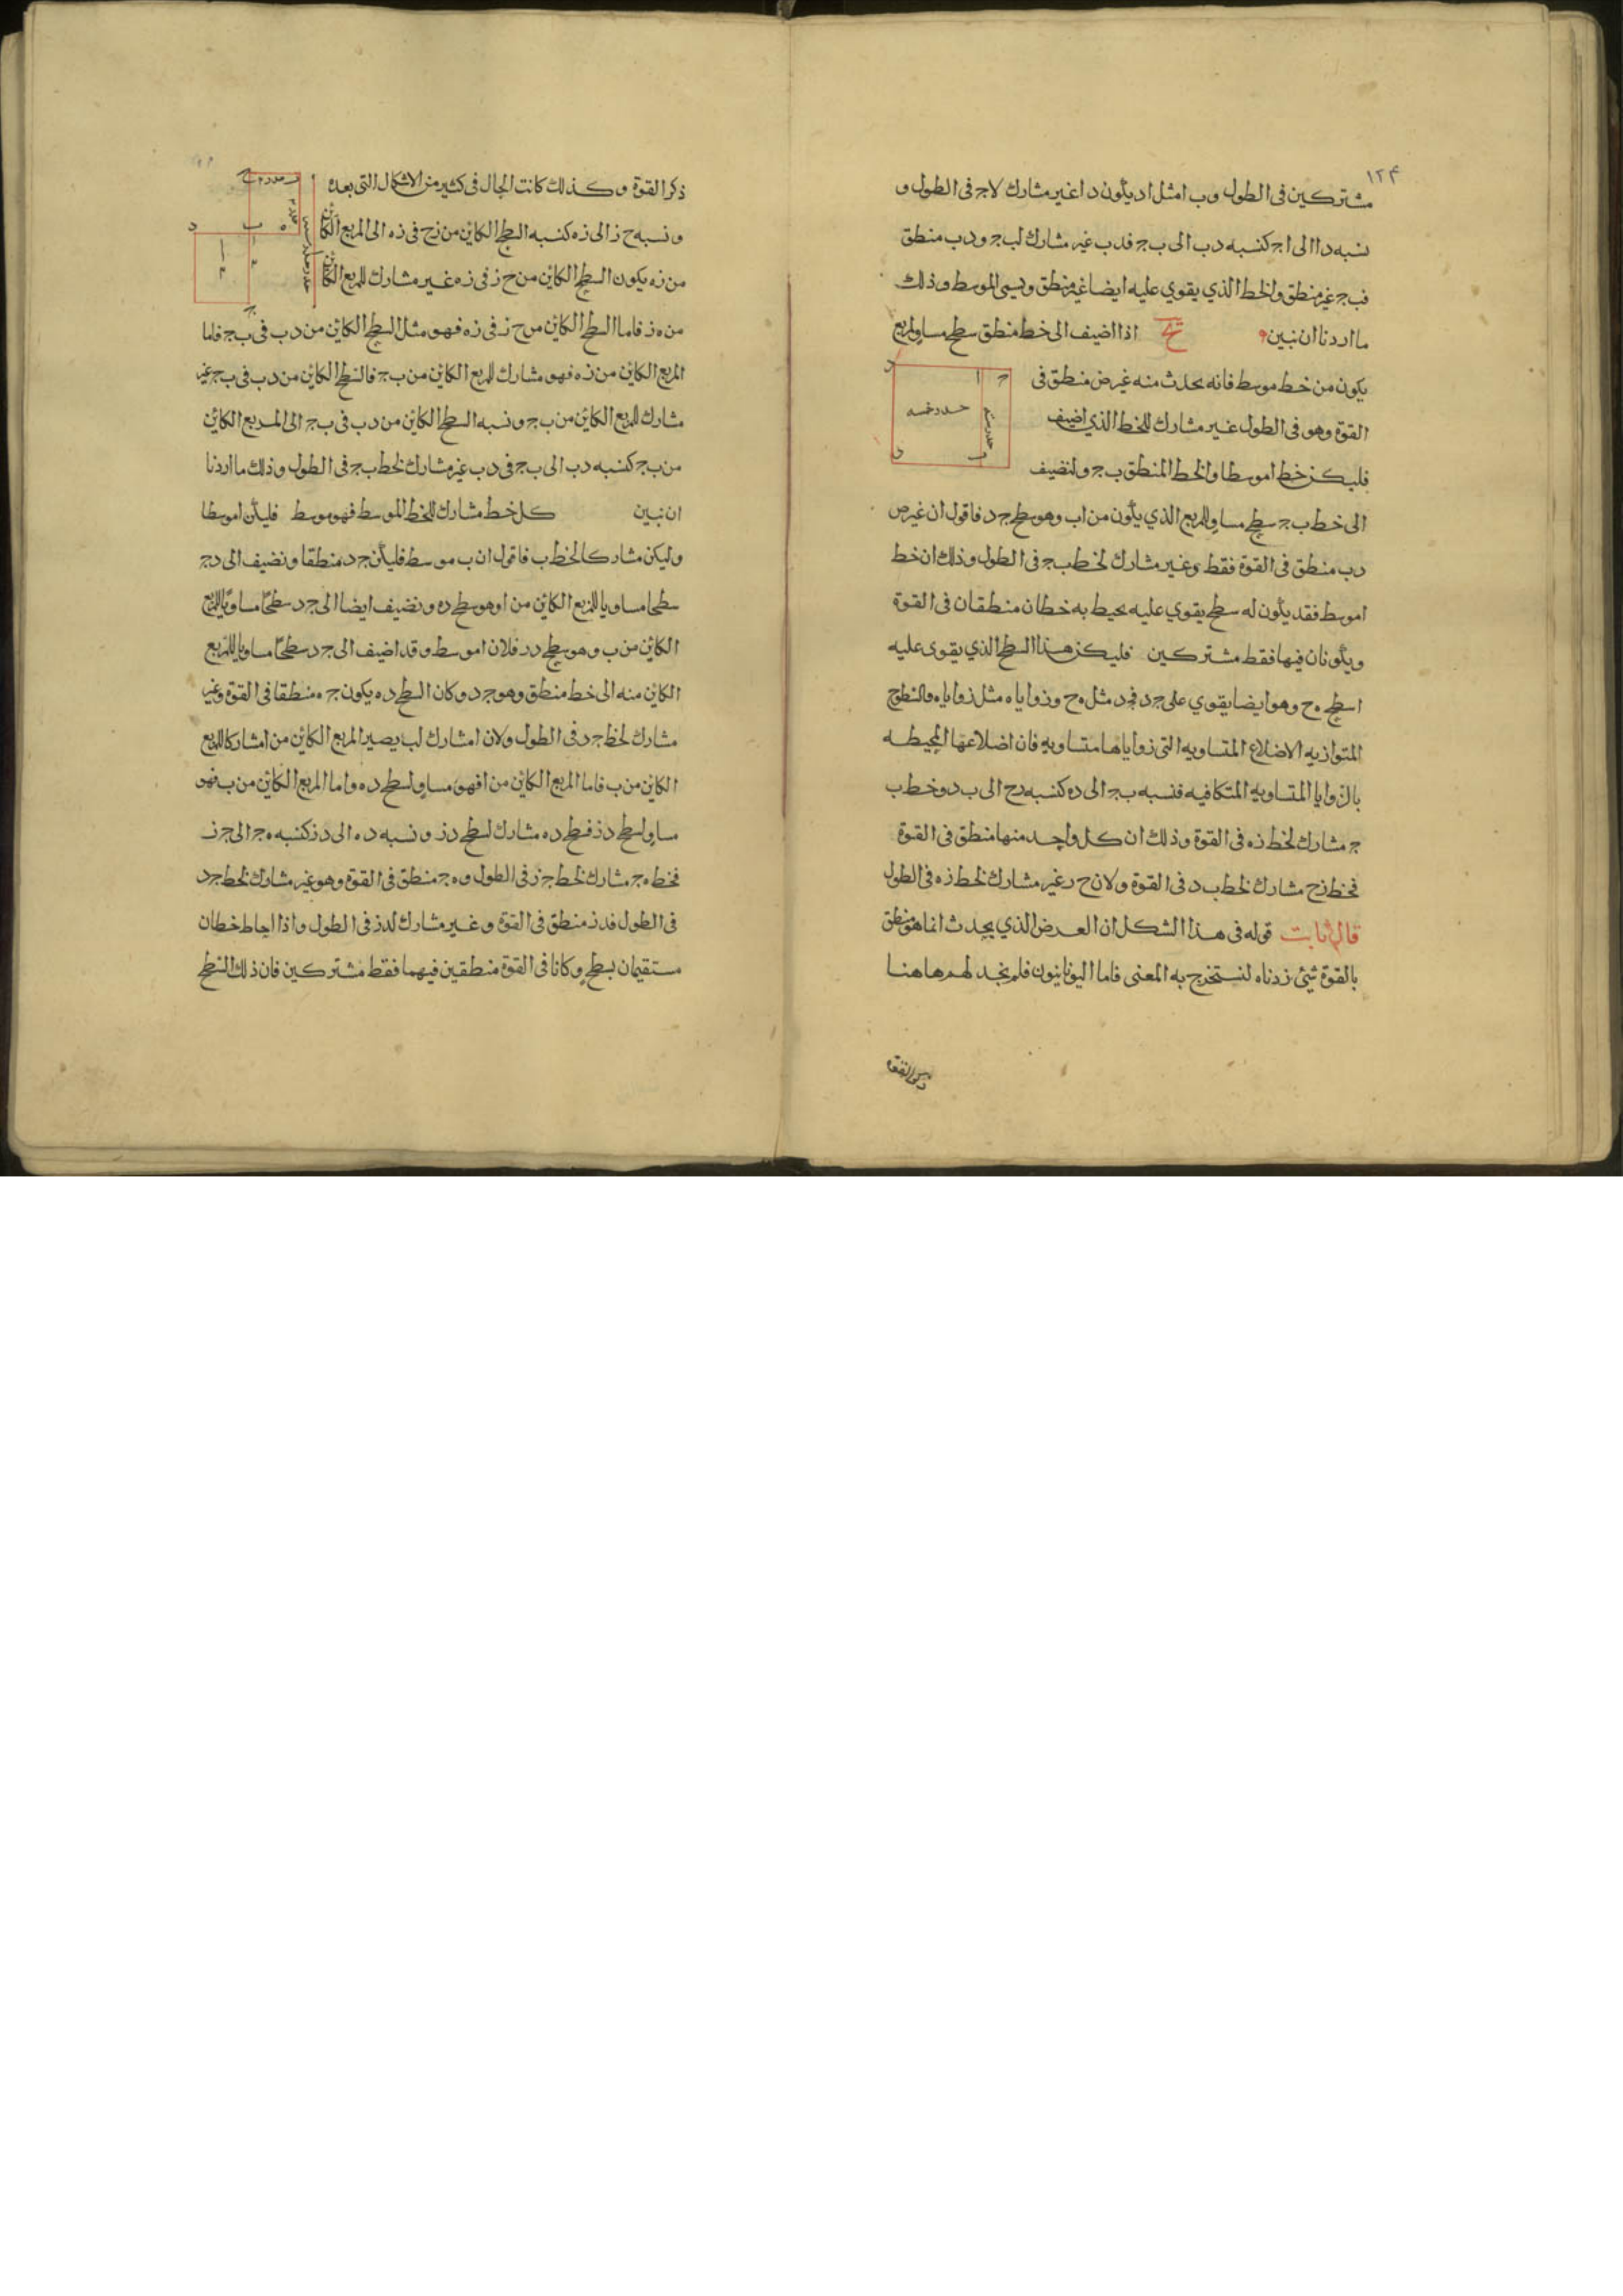 ١٢۴
مشتركين فى الطول وب ا مثل اد يكون دا غير مشارك لاجـ فى الطول و
نسبه دا الى اجـ كنسبه دب الى بجـ فدب غير مشارك لبجـ ودب منطق
فبجـ غير منطق والخط الذي يقوي عليه ايضا غير منطق ويسمى الموسط وذلك
ما اردنا ان نبين اذا اضيف الى خط منطق سطح مساو لمربع
يكون من خط موسط فانه يحدث منه عرض منطق فى
القوة وهو فى الطول غير مشارك للخط الذي اضيف
فليكن خط ا موسطا والخط المنطق بجـ ولنضيف
الى خط بجـ سطح مساو للمربع الذي يكون من اب وهو سطح جد فاقول ان عرض
دب منطق فى القوة فقط وغير مشارك لخط بجـ فى الطول وذلك ان خط
ا موسط فقد يكون له سطح يقوي عليه يحيط به خطان منطقان فى القوة
ويكونان فيها فقط مشتركين فليكن هذا السطح الذي يقوى عليه
ا سطح هح وهو ايضا يقوي على جد فجد مثل هح وزواياه مثل زواياه والسطوح
المتوازيه الاضلاع المتساويه التى زواياها متساويه فان اضلاعها المحيطه
بالزوايا المتساويه المتكافيه فنسبه بجـ الى ده كنسبه رح الى بد وخط ب
جـ مشارك لخط زه فى القوة وذلك ان كل واحد منها منطق فى القوة
فخط زح مشارك لخط بد فى القوة ولان ح ر غير مشارك لخط زه فى الطول
قال ثابت قوله فى هذا الشكل ان العرض الذي يحدث انما هو منطق
بالقوة شئ زدناه لنستخرج به المعنى فاما اليونانيون فلم نجد لهم هاهنا
ذكر القوة
ذكر القوة وكذلك كانت الحال فى كثير من الاشكال التى بعده
ونسبه ح ز الى زه كنسبه السطح الكائن من زح فى زه الى المربع الكائن
من زه يكون السطح الكائن من ح ز فى زه غير مشارك للمربع الكائن
من ه ز فاما السطح الكائن من ح ز فى زه فهو مثل السطح الكائن من دب فى بجـ فاما
المربع الكائن من زه فهو مشارك للمربع الكائن من بجـ فالسطح الكائن من دب فى بجـ غير
مشارك للمربع الكائن من بجـ ونسبه السطح الكائن من دب فى بجـ الى المربع الكائن
من بجـ كنسبه دب الى بجـ فى دب غير مشارك لخط بجـ فى الطول وذلك ما اردنا
ان نبين كل خط مشارك للخط الموسط فهو موسط فليكن ا موسطا
وليكن مشاركا لخط ب فاقول ان ب موسط فليكن جد منطقا ونضيف الى دجـ
سطحا مساويا للمربع الكائن من ا وهو سطح ده ونضيف ايضا الى جد سطحًا مساويًا للمربع
الكائن من ب وهو سطح در فلان ا موسط وقد اضيف الى جد سطحًا مساويا للمربع
الكائن منه الى خط منطق وهو جد وكان السطح ده يكون جه منطقا فى القوة وغير
مشارك لخط جد فى الطول ولان ا مشارك لب يصير المربع الكائن من ا مشاركا للمربع
الكائن من ب فاما المربع الكائن من ا فهو مساو لسطح ده واما المربع الكائن من ب فهو
مساو لسطح دز فسطح ده مشارك لسطح دز ونسبه ده الى دز كنسبه هجـ الى جز
فخط هجـ مشارك لخط جز فى الطول وهجـ منطق فى القوة وهو غير مشارك لخط جد
فى الطول فدز منطق فى القوة وغير مشارك لدز فى الطول واذا احاط خطان
مستقيمان بسطح وكانا فى القوة منطقين فيهما فقط مشتركين فان ذلك السطح